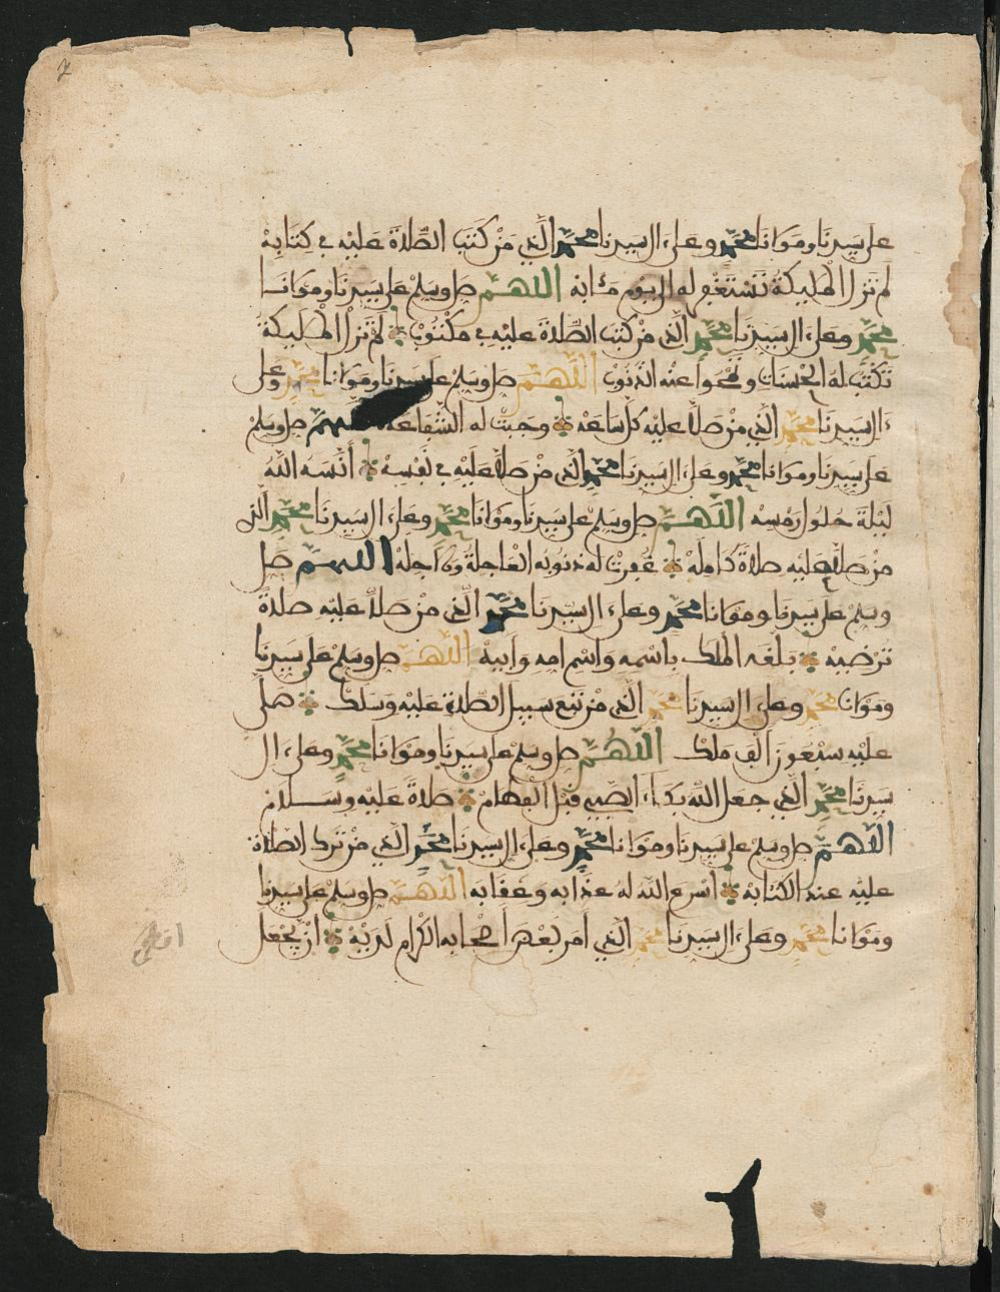 على سيدنا ومولانا محمد وعلى ءال سيدنا محمد الذي من كتب الصلاة عليه في كتابه
لم تزل الملـيكة تستغفر له الى يوم مـئابه اللهم صل وسلم على سيدنا ومولانا
محمد وعلى ءال سيدنا محمد الذي من كتب الصلاة عليه في مكتوب لم تزل الملـيكة
تكتب له الحسنات وتمحوا عنه الذنوب اللهم صل وسلم على سيدنا ومولانا محمد وعلى
ءال سيدنا محمد الذي من صلا عليه كل ساعه وجبت له الشفاعه اللهم صل وسلم
على سيدنا ومولانا محمد وعلى ءال سيدنا محمد الذي من صلا عليه في نفسه أنسه الله
ليلة حلول رمسه اللهم صل وسلم على سيدنا ومولانا محمد وعلى ءال سيدنا محمد الذي
من صلا عليه صلاة كامله غفرت له ذنوبه العاجلة والاجله اللهم صل
وسلم على سيدنا ومولانا محمد وعلى ءال سيدنا محمد الذي من صلا عليه صلاة
ترضيه بلغه الملك باسمه واسم امه وابيه اللهم صل وسلم على سيدنا
ومولانا محمد وعلى ءال سيدنا محمد الذي من تتبع سبيل الصلاة عليه وسلك صلى
عليه سبعون الف ملك اللهم صل وسلم على سيدنا ومولانا محمد وعلى ءال
سيدنا محمد الذي جعل الله بكاء الصبي قبل الفطام صلاة عليه وسلام
اللهم صل وسلم على سيدنا ومولانا محمد وعلى ءال سيدنا محمد الذي من ترك الصلاة
عليه عند الكتابه اسرع الله له عذابه وعقابه اللهم صل وسلم على سيدنا
ومولانا محمد وعلى ءال سيدنا محمد الذي امر بعض أصحابه الكرام لديه ان يجعل